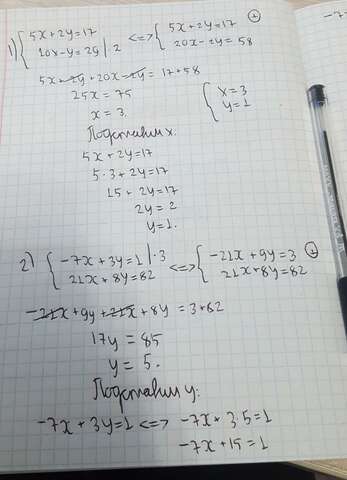 1) { 5x+2y=17 <=> { 5x+2y=17 +
10x-y=29 |·2 20x-2y=58
5x+2y+20x-2y=17+58
25x=75 { x=3
x=3. y=1
Подставим x.
5x+2y=17
5·3+2y=17
15+2y=17
2y=2
y=1.
2) { -7x+3y=1 |·3 <=> { -21x+9y=3 +
21x+8y=82 21x+8y=82
-21x+9y+21x+8y=3+82
17y=85
y=5.
Подставим y:
-7x+3y=1 <=> -7x+3·5=1
-7x+15=1